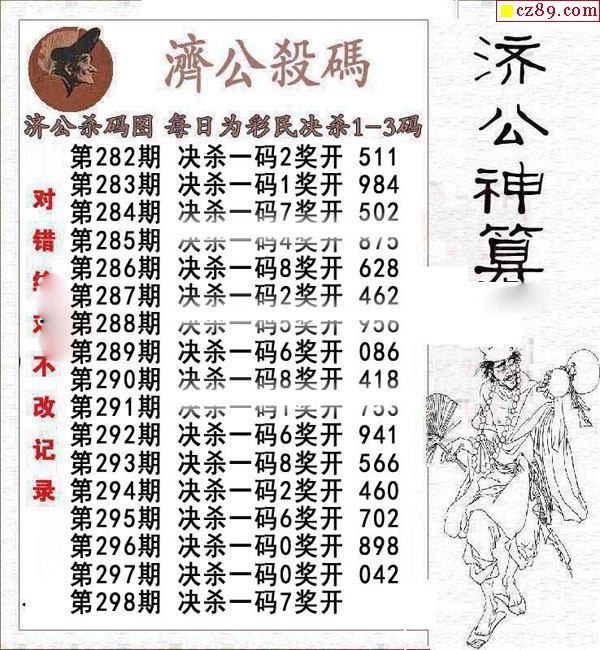 cz89.com
濟公殺碼
济公杀码图 每日为彩民决杀1-3码
第282期 决杀一码2奖开 511
第283期 决杀一码1奖开 984
第284期 决杀一码7奖开 502
第285期 决杀一码4奖开 875
第286期 决杀一码8奖开 628
第287期 决杀一码2奖开 462
第288期 决杀一码5奖开 956
第289期 决杀一码6奖开 086
第290期 决杀一码8奖开 418
第291期 决杀一码1奖开 753
第292期 决杀一码6奖开 941
第293期 决杀一码8奖开 566
第294期 决杀一码2奖开 460
第295期 决杀一码6奖开 702
第296期 决杀一码0奖开 898
第297期 决杀一码0奖开 042
第298期 决杀一码7奖开
对错 不改记录
济公神算